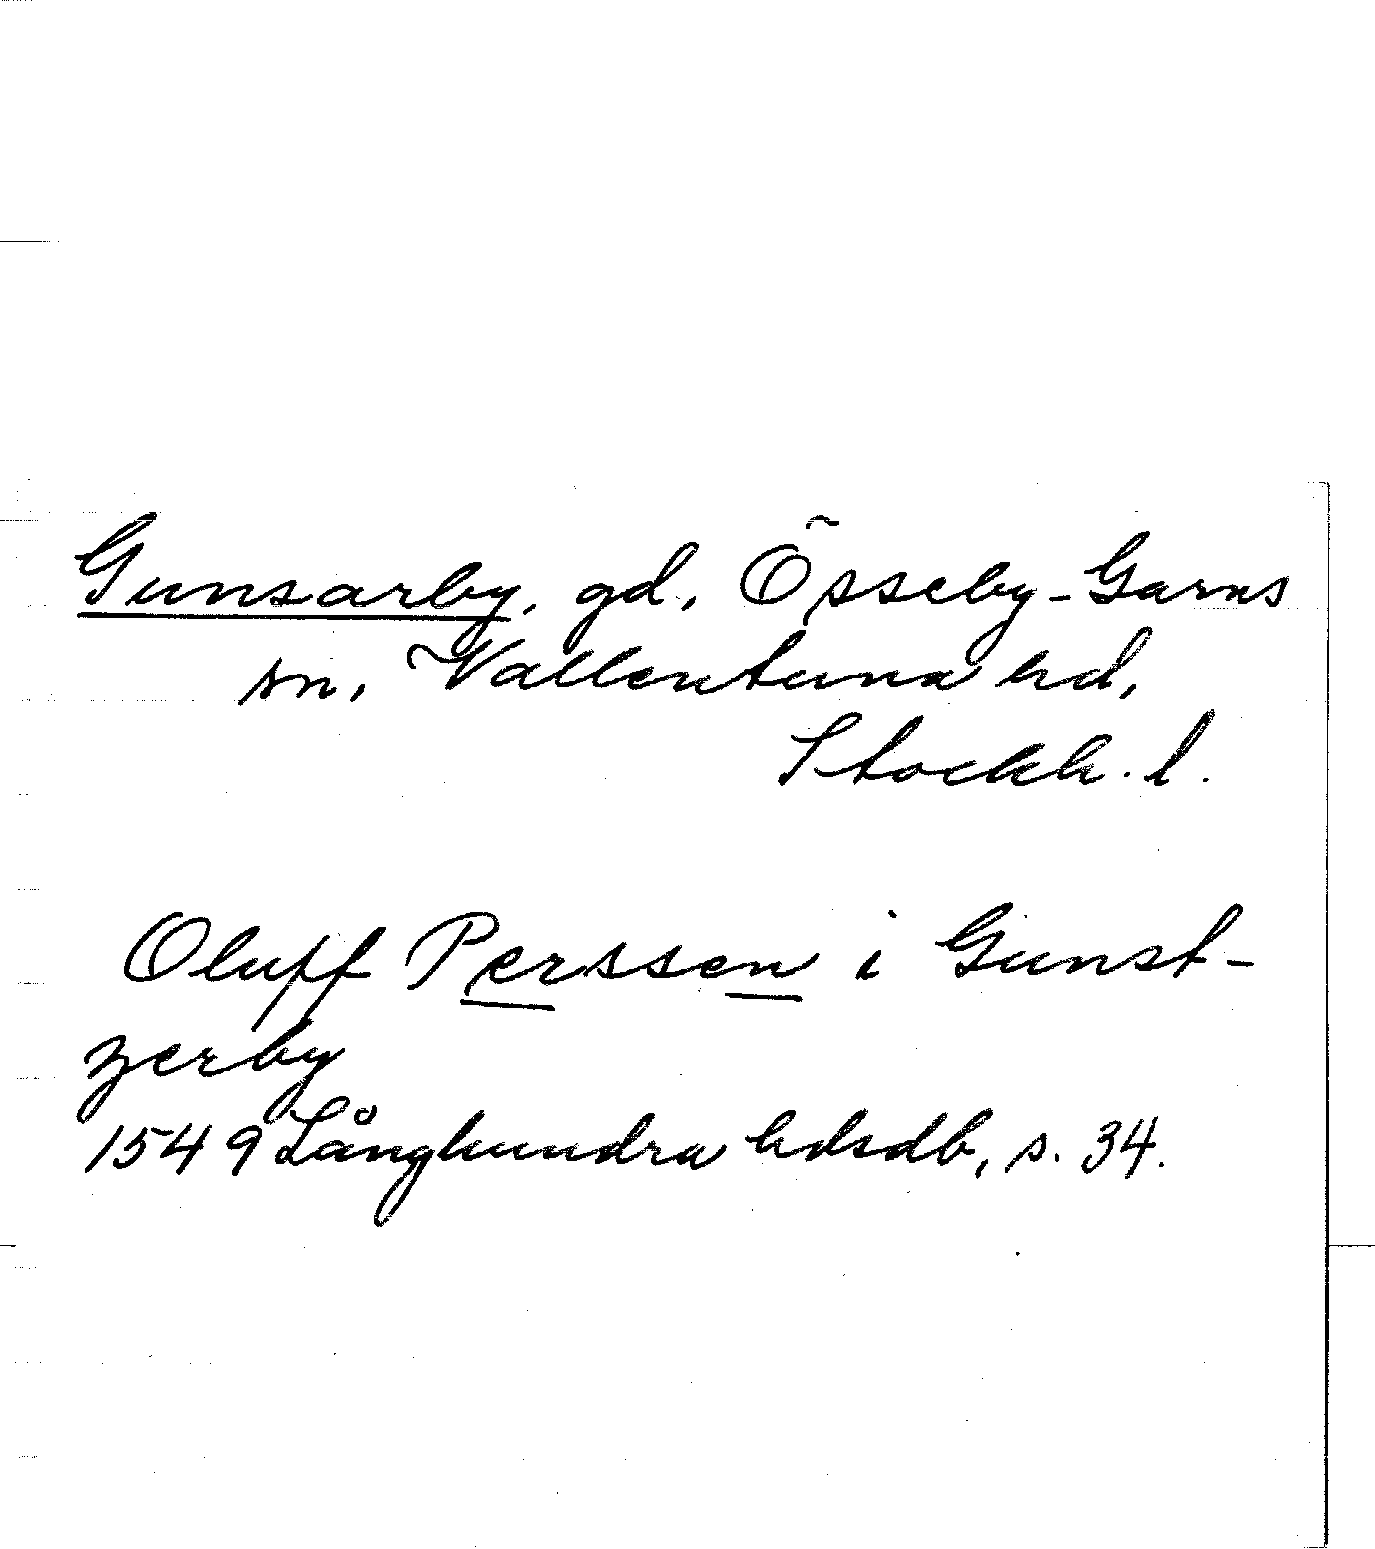 Gunsarby, gd, Össeby-Garns
sn, Vallentuna hd,
Stockh. l.
Oluff Perssen i Gunst-
zerby
1549 Långhundra hdsdb, s. 34.